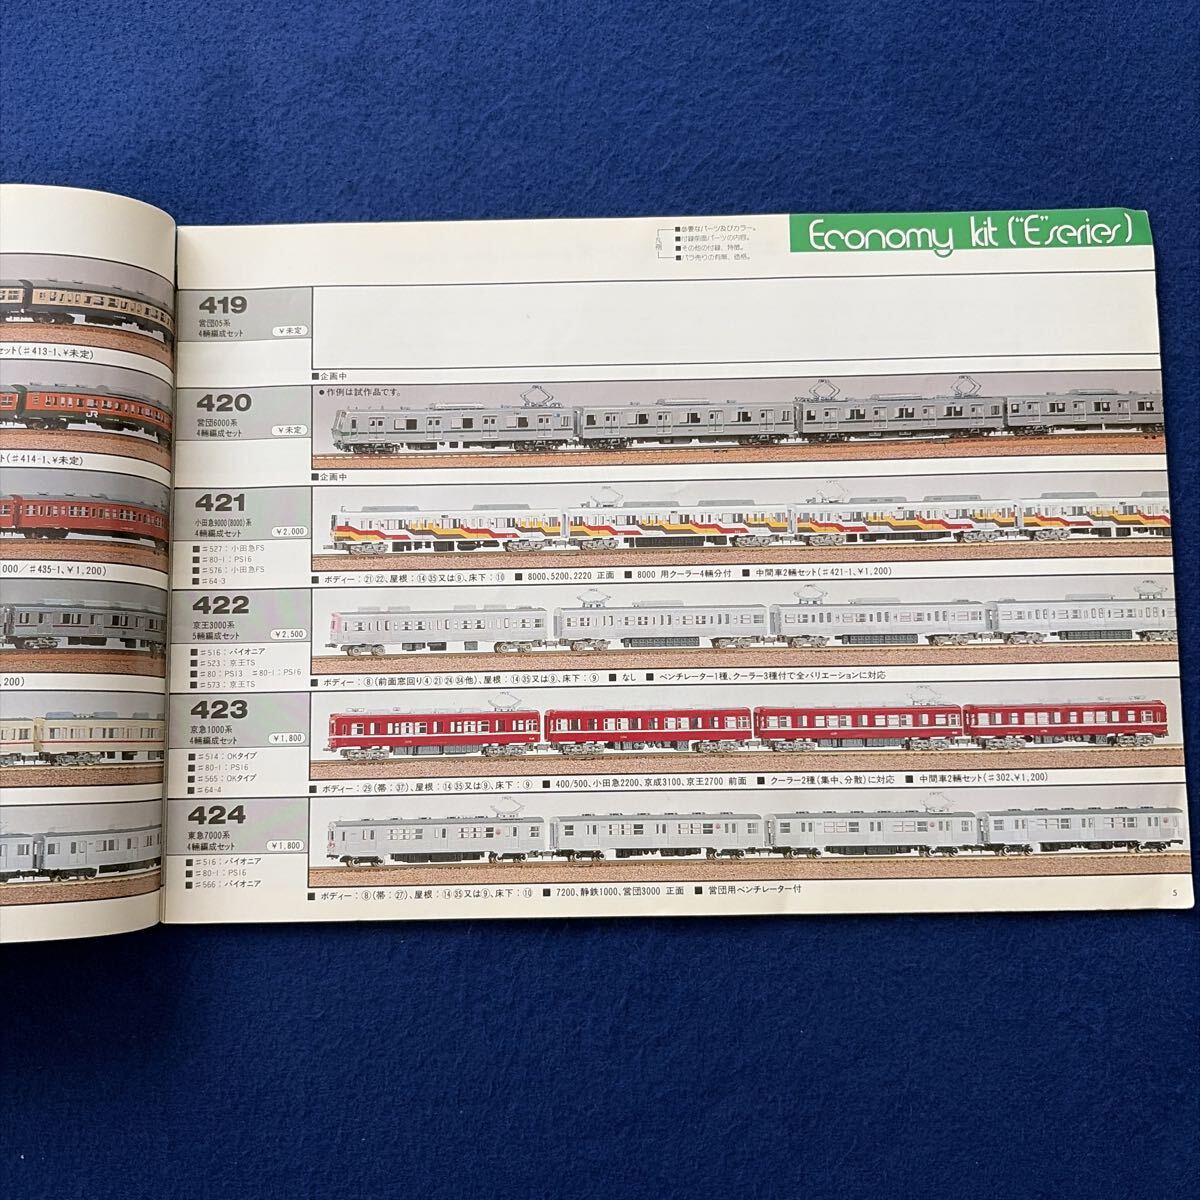 セット(♯413-1、¥未定)
JR
ト(♯414-1、¥未定)
000/♯435-1、¥1,200)
,200)
凡例
■必要なパーツ及びカラー。
■付録前面パーツの内容。
■その他の付録、特徴。
■バラ売りの有無、価格。
Economy kit ("E"series)
419
営団05系
4輛編成セット
¥未定
■企画中
420
営団6000系
4輛編成セット
¥未定
●作例は試作品です。
■企画中
421
小田急9000(8000)系
4輛編成セット
¥2,000
■♯527:小田急FS
■♯80-1:PS16
■♯576:小田急FS
■♯64-3
■ボディー:㉑㉒、屋根:⑭㉟又は⑨、床下:⑩ ■8000,5200,2220 正面 ■8000 用クーラー4輛分付 ■中間車2輛セット(♯421-1、¥1,200)
422
京王3000系
5輛編成セット
¥2,500
■♯516:パイオニア
■♯523:京王TS
■♯80:PS13 ♯80-1:PS16
■♯573:京王TS
■ボディー:⑧(前面窓回り④㉑㉔㉞他)、屋根:⑭㉟又は⑨、床下:⑨ ■なし ■ベンチレーター1種、クーラー3種付で全バリエーションに対応
423
京急1000系
4輛編成セット
¥1,800
■♯514:OKタイプ
■♯80-1:PS16
■♯565:OKタイプ
■♯64-4
■ボディー:㉙(帯:㊲)、屋根:⑭㉟又は⑨、床下:⑨ ■400/500、小田急2200、京成3100、京王2700 前面 ■クーラー2種(集中、分散)に対応 ■中間車2輛セット(♯302、¥1,200)
424
東急7000系
4輛編成セット
¥1,800
■♯516:パイオニア
■♯80-1:PS16
■♯566:パイオニア
■ボディー:⑧(帯:㉗)、屋根:⑭㉟又は⑨、床下:⑩ ■7200、静鉄1000、営団3000 正面 ■営団用ベンチレーター付
5